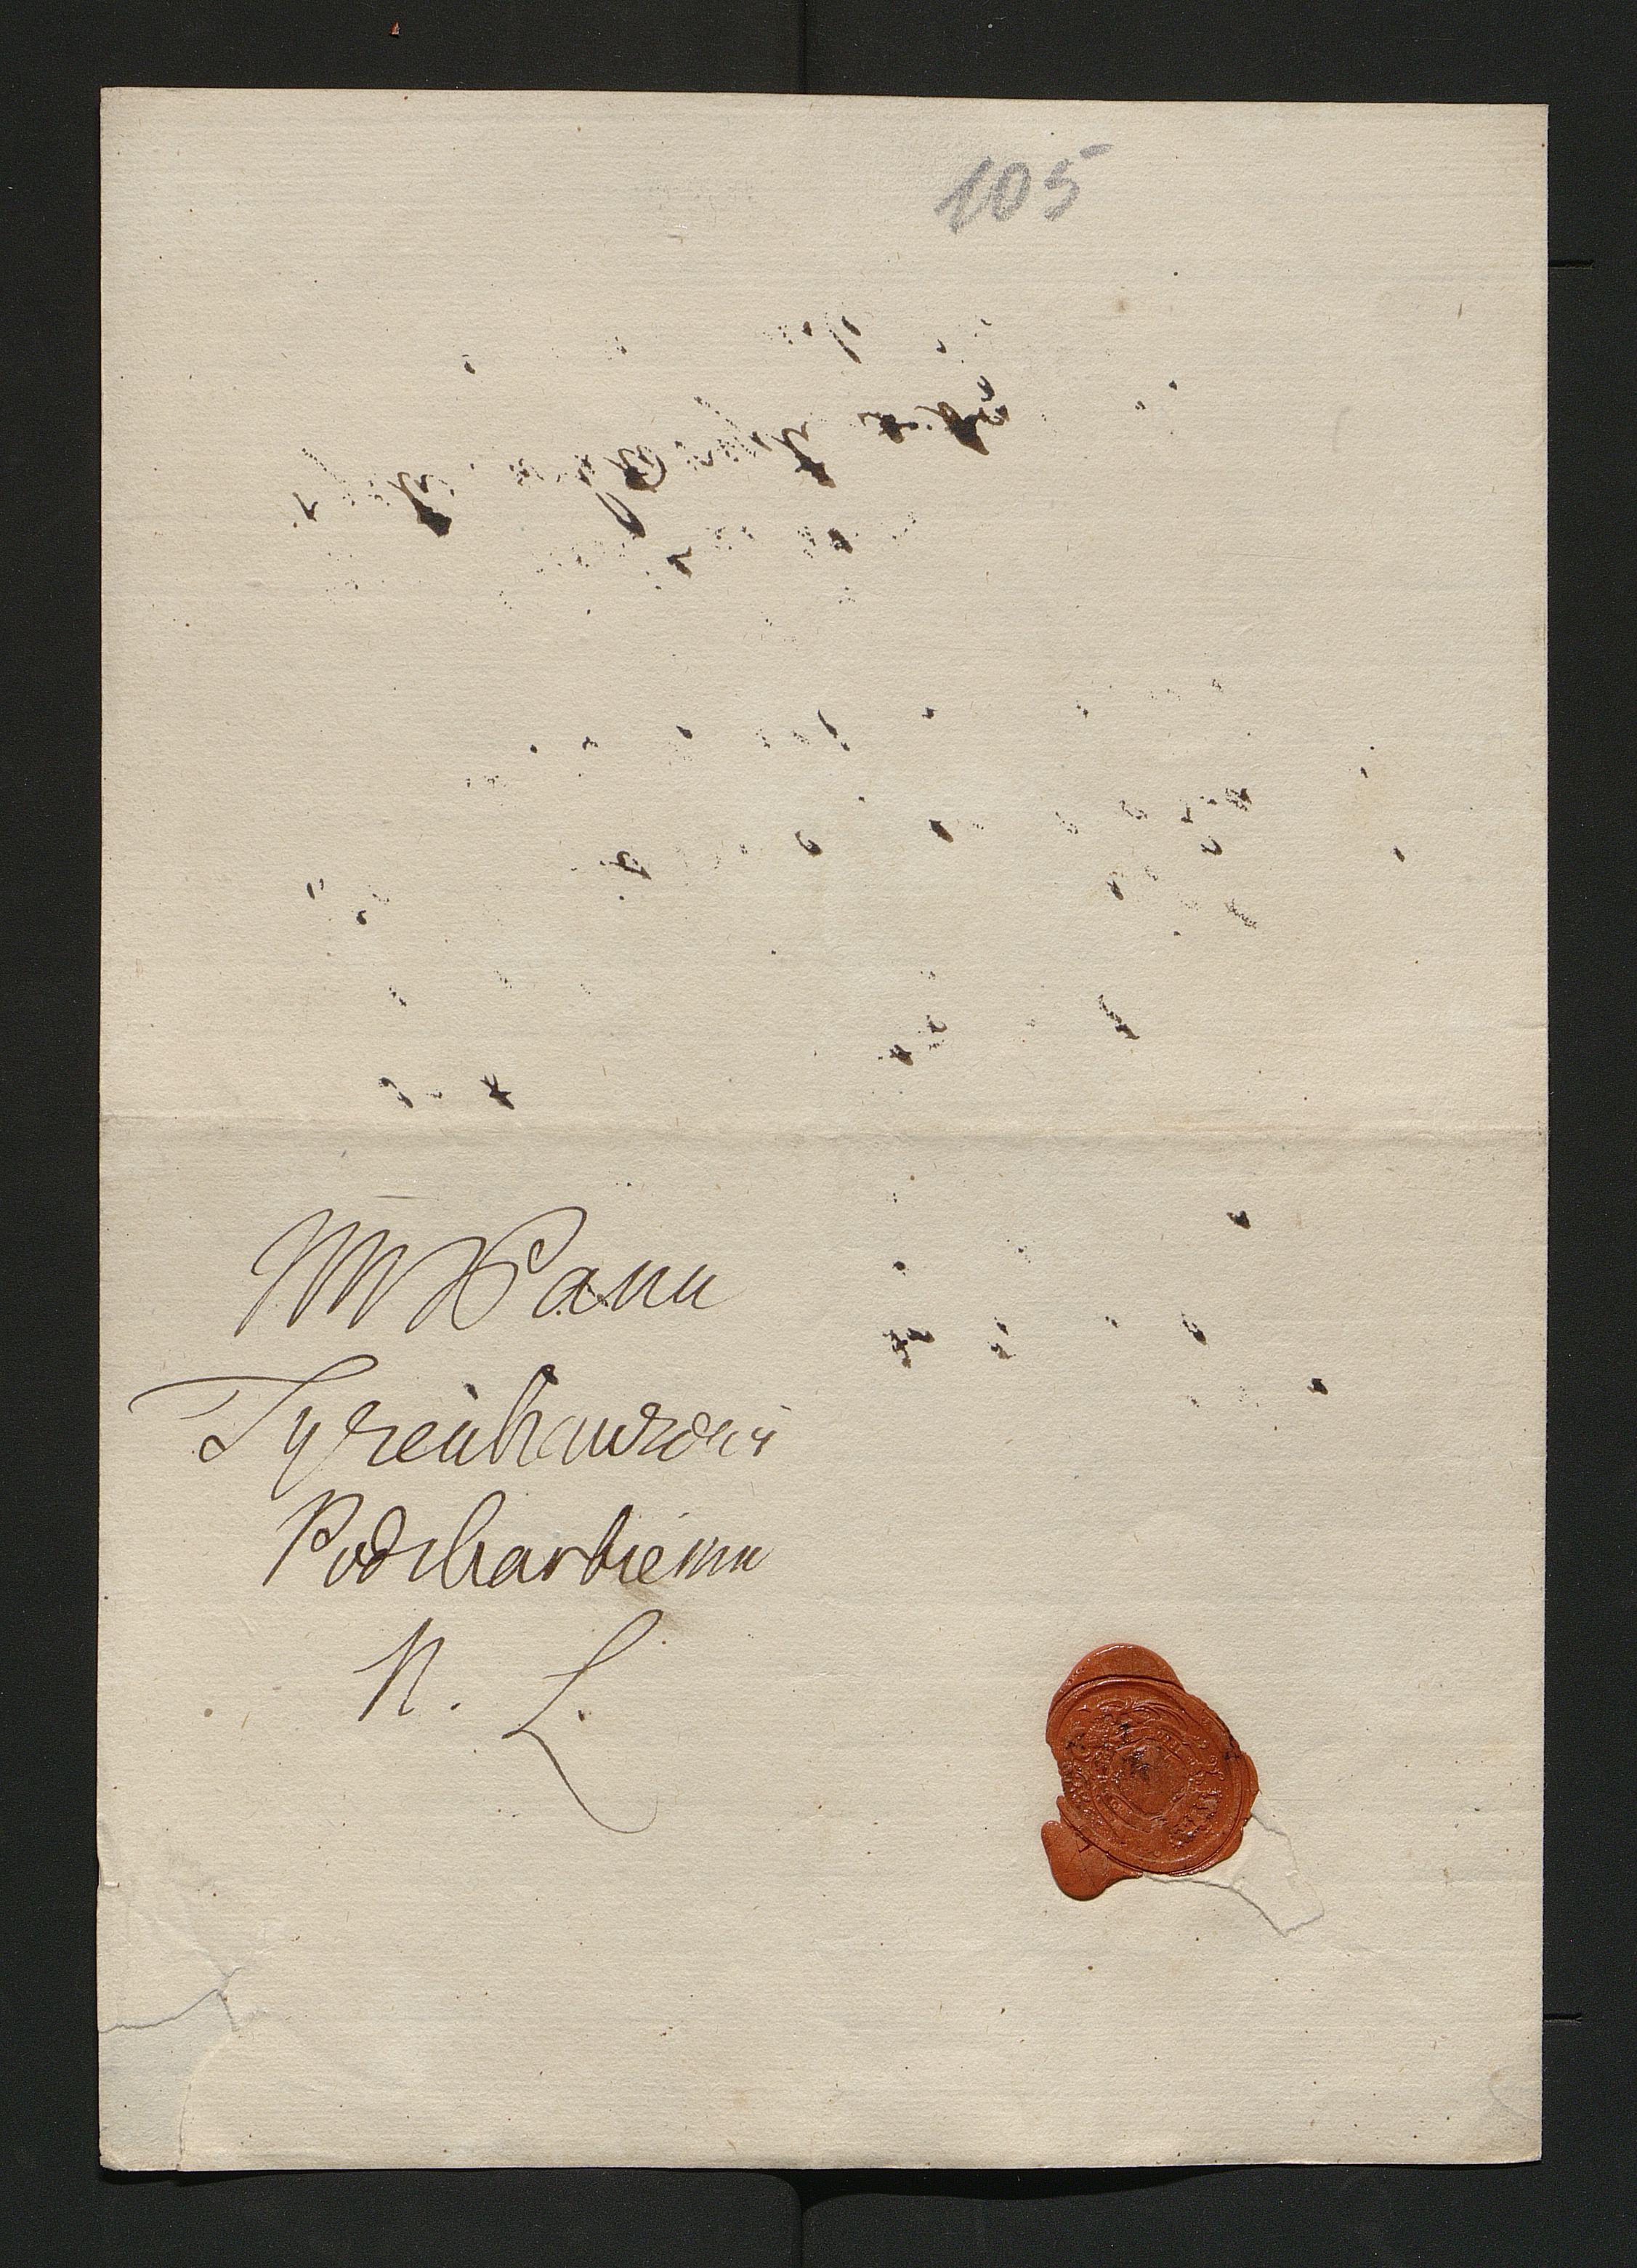 105
WW Panu
Tyzenhauzowi
Podskarbiemu
N. L.